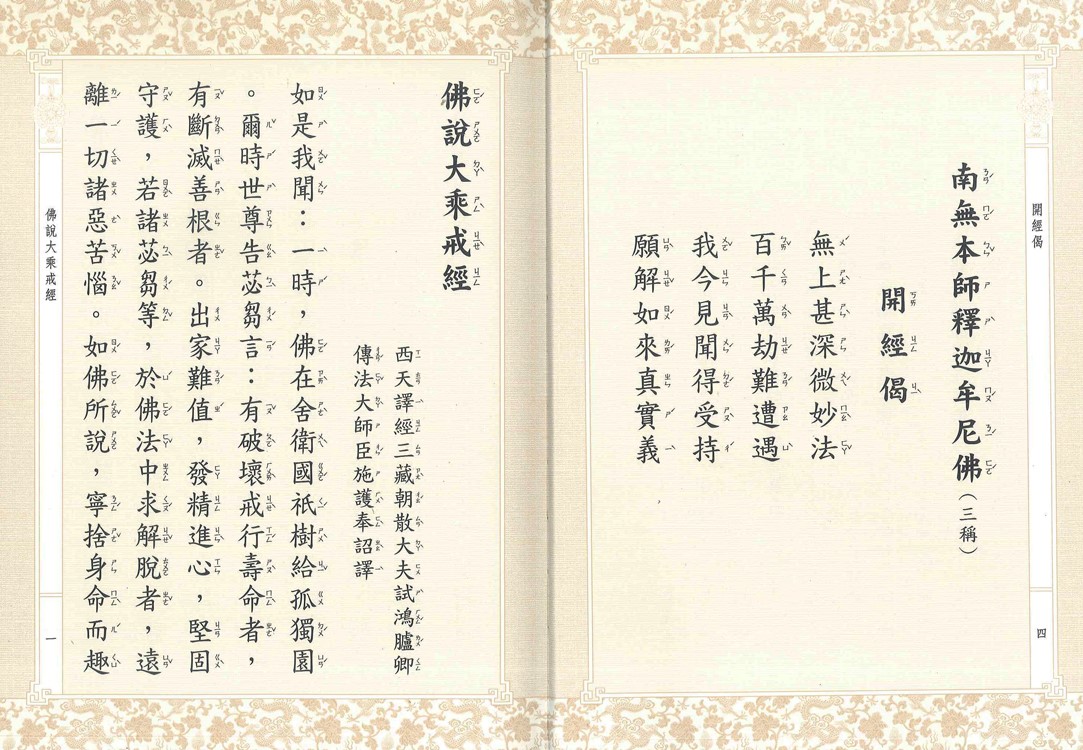 開經偈
南無本師釋迦牟尼佛(三稱)
開經偈
無上甚深微妙法
百千萬劫難遭遇
我今見聞得受持
願解如來真實義
四
佛說大乘戒經
西天譯經三藏朝散大夫試鴻臚卿
傳法大師臣施護奉詔譯
如是我聞：一時，佛在舍衛國祇樹給孤獨園
。爾時世尊告苾芻言：有破壞戒行壽命者，
有斷滅善根者。出家難值，發精進心，堅固
守護，若諸苾芻等，於佛法中求解脫者，遠
離一切諸惡苦惱。如佛所說，寧捨身命而趣
佛說大乘戒經
一